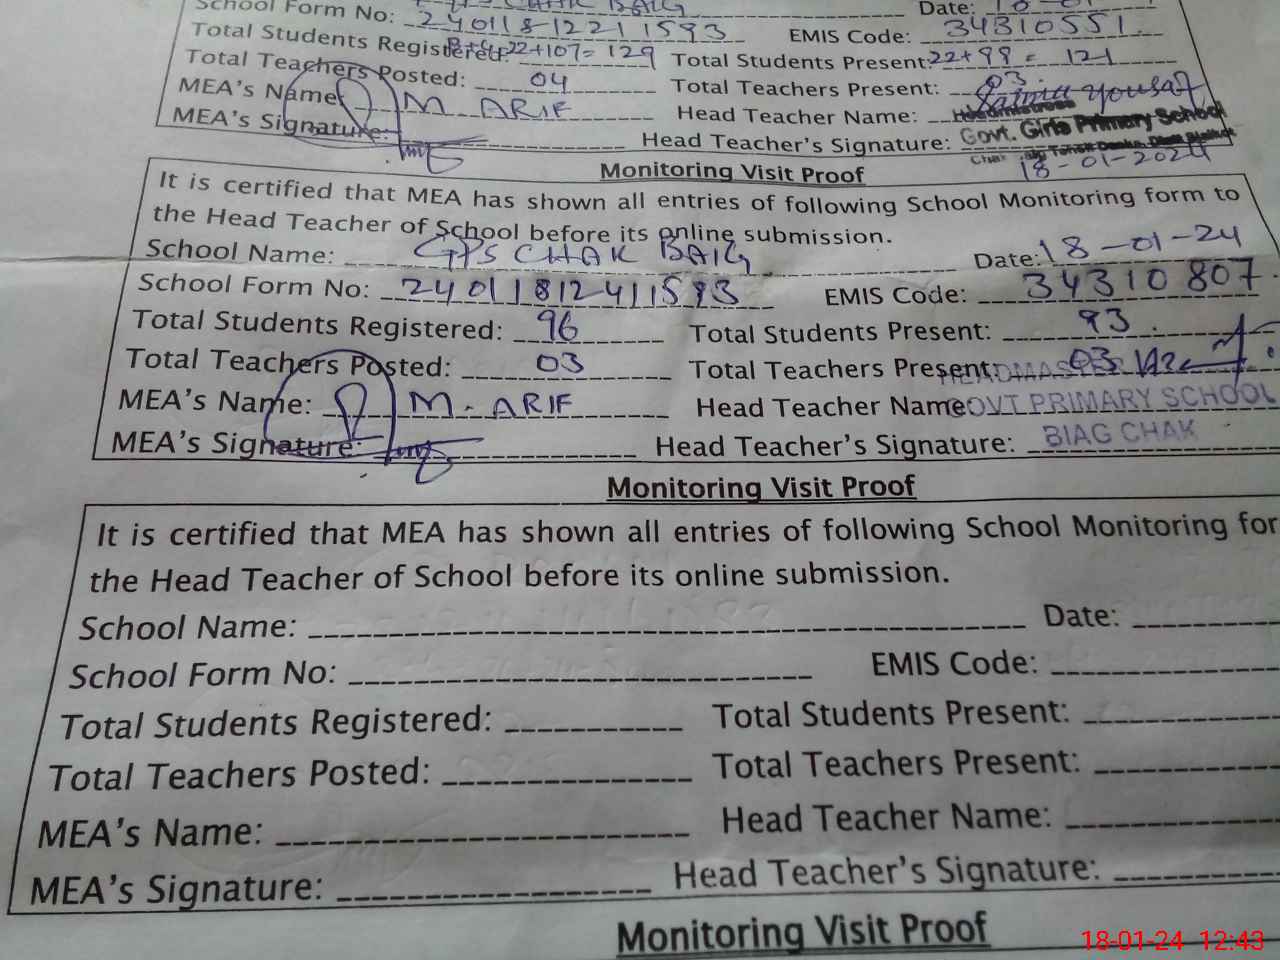 CHAK BAIG Date: 18-01-
School Form No: 240118-12211593 EMIS Code: 34310551.
Total Students Registered: 22+107= 129 Total Students Present: 22+99 = 121
Total Teachers Posted: 04 Total Teachers Present: 03.
MEA's Name: M ARIF Head Teacher Name: Saima Yousaf
Headmistress
MEA's Signature: Head Teacher's Signature: Govt. Girls Primary School
Chak
18-01-2024
Monitoring Visit Proof
It is certified that MEA has shown all entries of following School Monitoring form to
the Head Teacher of School before its online submission.
School Name: GPS CHAK BAIG Date: 18-01-24
School Form No: 24011812411593 EMIS Code: 34310807.
Total Students Registered: 96 Total Students Present: 93.
Total Teachers Posted: 03 Total Teachers Present: 03
HEADMASTER
MEA's Name: M. ARIF Head Teacher Name GOVT PRIMARY SCHOOL
MEA's Signature: Head Teacher's Signature: BIAG CHAK
Monitoring Visit Proof
It is certified that MEA has shown all entries of following School Monitoring for
the Head Teacher of School before its online submission.
School Name: Date:
School Form No: EMIS Code:
Total Students Registered: Total Students Present:
Total Teachers Posted: Total Teachers Present:
MEA's Name: Head Teacher Name:
MEA's Signature: Head Teacher's Signature:
Monitoring Visit Proof
18-01-24 12:43